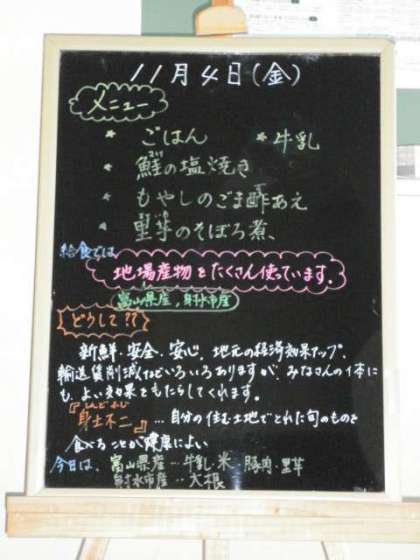 11月4日(金)
メニュー
* ごはん * 牛乳
* 鮭の塩焼き
* もやしのごま酢あえ
* 里芋のそぼろ煮、
給食では
地場産物をたくさん使っています。
富山県産，射水市産
どうして??
新鮮・安全・安心、地元の経済効果アップ、
輸送費削減などいろいろありますが、みなさんの体に
も、よい効果をもたらしてくれます。
しんどふじ
『身土不二』 … 自分の住む土地でとれた旬のものを
食べることが健康によい
今日は、富山県産 … 牛乳・米・豚肉・里芋
射水市産 … 大根